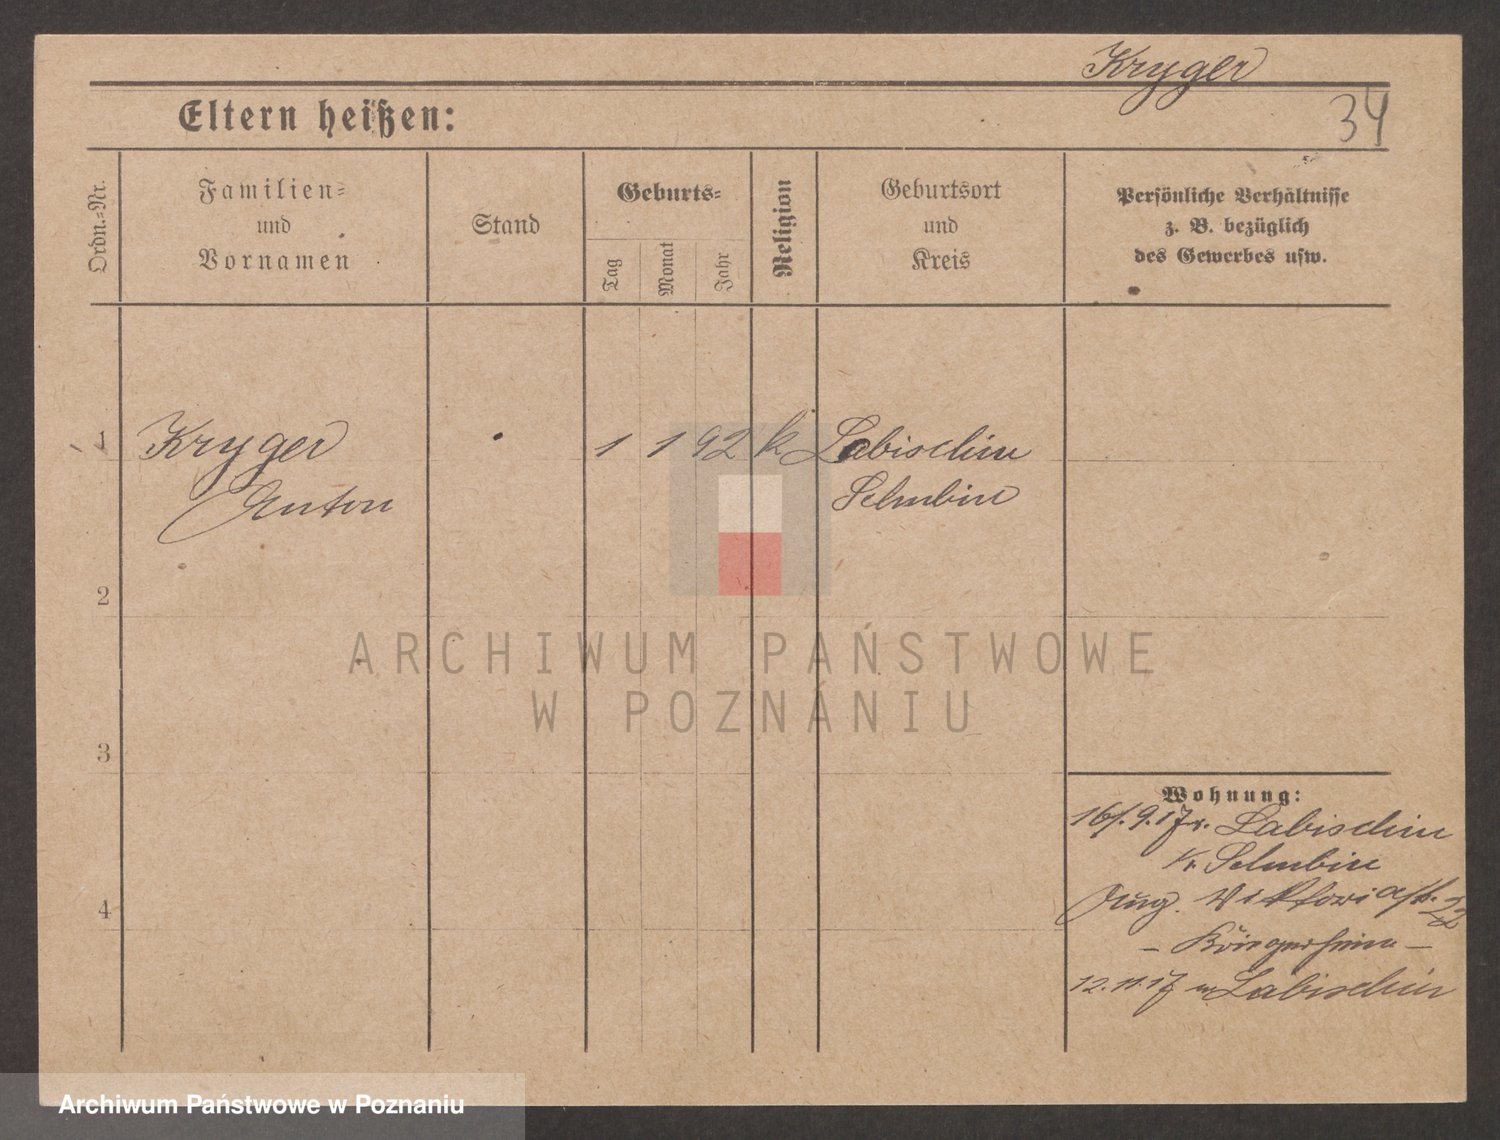 Kryger
34
Eltern heißen:
Ordn.=Nr.
Familien=
und
Vornamen
Stand
Geburts=
Tag
Monat
Jahr
Religion
Geburtsort
und
Kreis
Persönliche Verhältnisse
z. B. bezüglich
des Gewerbes usw.
1 Kryger 1 1 92 k Labischin
Anton Schubin
2
3
4
Wohnung:
16/.9.17 v. Labischin
Kr. Schubin
Aug. Viktoriastr. 22
– Kriegerheim –
12.11.17 n Labischin
ARCHIWUM PAŃSTWOWE
W POZNANIU
Archiwum Państwowe w Poznaniu